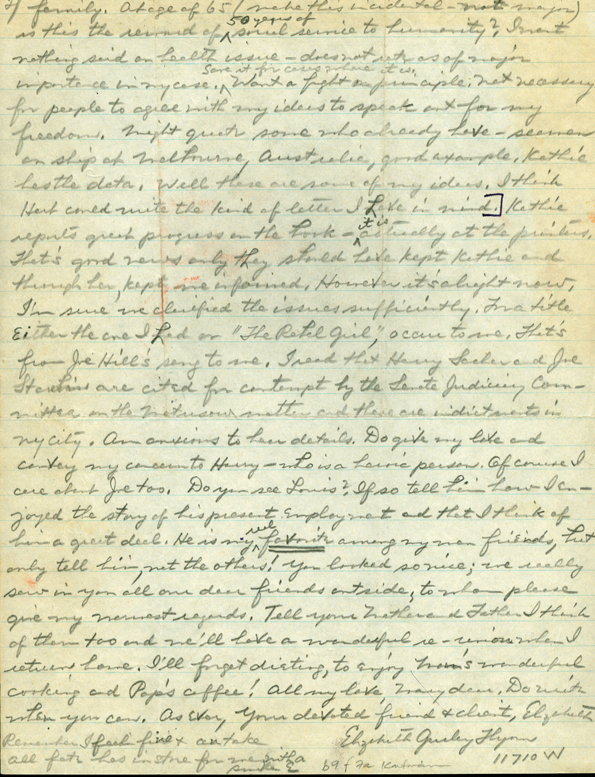 family. At age of 65 (make this incidental - not major)
50 years of
is this the reward of social service to humanity? I want
nothing said on health issue - does not rate as of major
Save it for cases where it is.
importance in my case. Want a fight on principle. Not necessary
for people to agree with my ideas to speak out for my
freedom. Might quote some who already have - seamen
on ship at Melbourne, Australia, good example. Kathie
has the data. Well these are some of my ideas. I think
Hart could write the kind of letter I have in mind. Kathie
reports great progress on the book - it is actually at the printers.
That's good news only they should have kept Kathie and
through her, kept me informed. However it's alright now,
I'm sure we clarified the issues sufficiently. For a title
Either the one I had or "The Rebel Girl", occur to me. That's
from Joe Hill's song to me. I read that Harry Sacher and Joe
Starobin are cited for contempt by the Senate Judiciary Com-
mittee, on the Matusow matter and there are indictments in
NY city. Am anxious to hear details. Do give my love and
convey my concern to Harry - who is a heroic person. Of course I
care about Joe too. Do you see Louis? If so tell him how I en-
joyed the story of his present employment and that I think of
him a great deal. He is my real favorite among my men friends, but
only tell him, not the others! You looked so nice; we really
saw in you all our dear friends outside, to whom please
give my warmest regards. Tell your Mother and Father I think
of them too and we'll have a wonderful re-union when I
return home. I'll forget dieting, to enjoy Mom's wonderful
cooking and Pop's coffee! All my love, Mary dear. Do write
when you can. As ever, Your devoted friend & client, Elizabeth
Remember I feel fine & can take Elizabeth Gurley Flynn
all fate has in store for me with a smile 11710 W